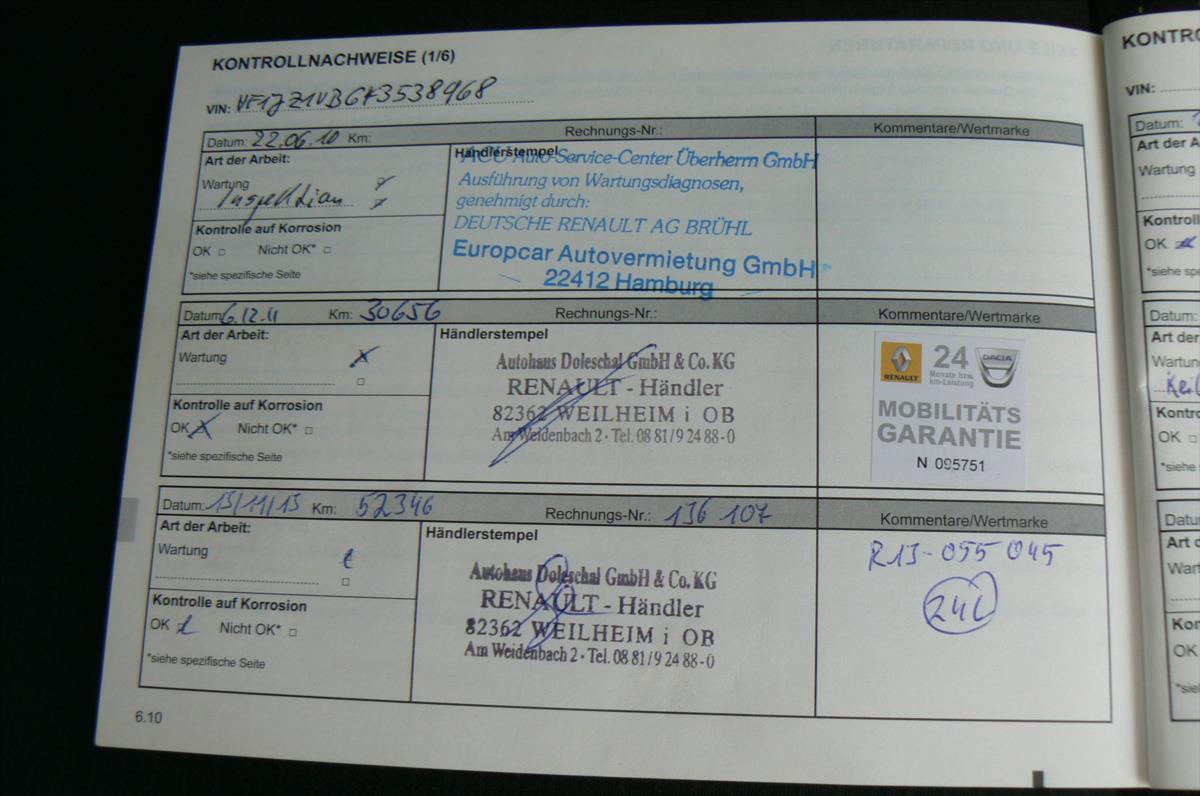 KONTROLLNACHWEISE (1/6)
VIN: VF1JZ1VBGK3538968
Datum: 22.06.10 Km: Rechnungs-Nr.: Kommentare/Wertmarke
Art der Arbeit:
Wartung
Inspektion
Kontrolle auf Korrosion
OK Nicht OK*
*siehe spezifische Seite
Händlerstempel
Auto-Service-Center Überherrn GmbH
Ausführung von Wartungsdiagnosen,
genehmigt durch:
DEUTSCHE RENAULT AG BRÜHL
Europcar Autovermietung GmbH
22412 Hamburg
Datum: 6.12.11 Km: 30656 Rechnungs-Nr.: Kommentare/Wertmarke
Art der Arbeit:
Wartung
Kontrolle auf Korrosion
OK Nicht OK*
*siehe spezifische Seite
Händlerstempel
Autohaus Doleschal GmbH & Co. KG
RENAULT - Händler
82362 WEILHEIM i OB
Am Weidenbach 2 · Tel. 08 81/9 24 88-0
RENAULT 24 DACIA
Monate bzw.
km-Leistung
MOBILITÄTS
GARANTIE
N 095751
Datum: 13/11/13 Km: 52346 Rechnungs-Nr.: 136 107 Kommentare/Wertmarke
Art der Arbeit:
Wartung
Kontrolle auf Korrosion
OK Nicht OK*
*siehe spezifische Seite
Händlerstempel
Autohaus Doleschal GmbH & Co. KG
RENAULT - Händler
82362 WEILHEIM i OB
Am Weidenbach 2 · Tel. 08 81/9 24 88-0
R13-055 045
6.10
VIN:
Datum:
Wartung
OK
Datum:
Art der
OK